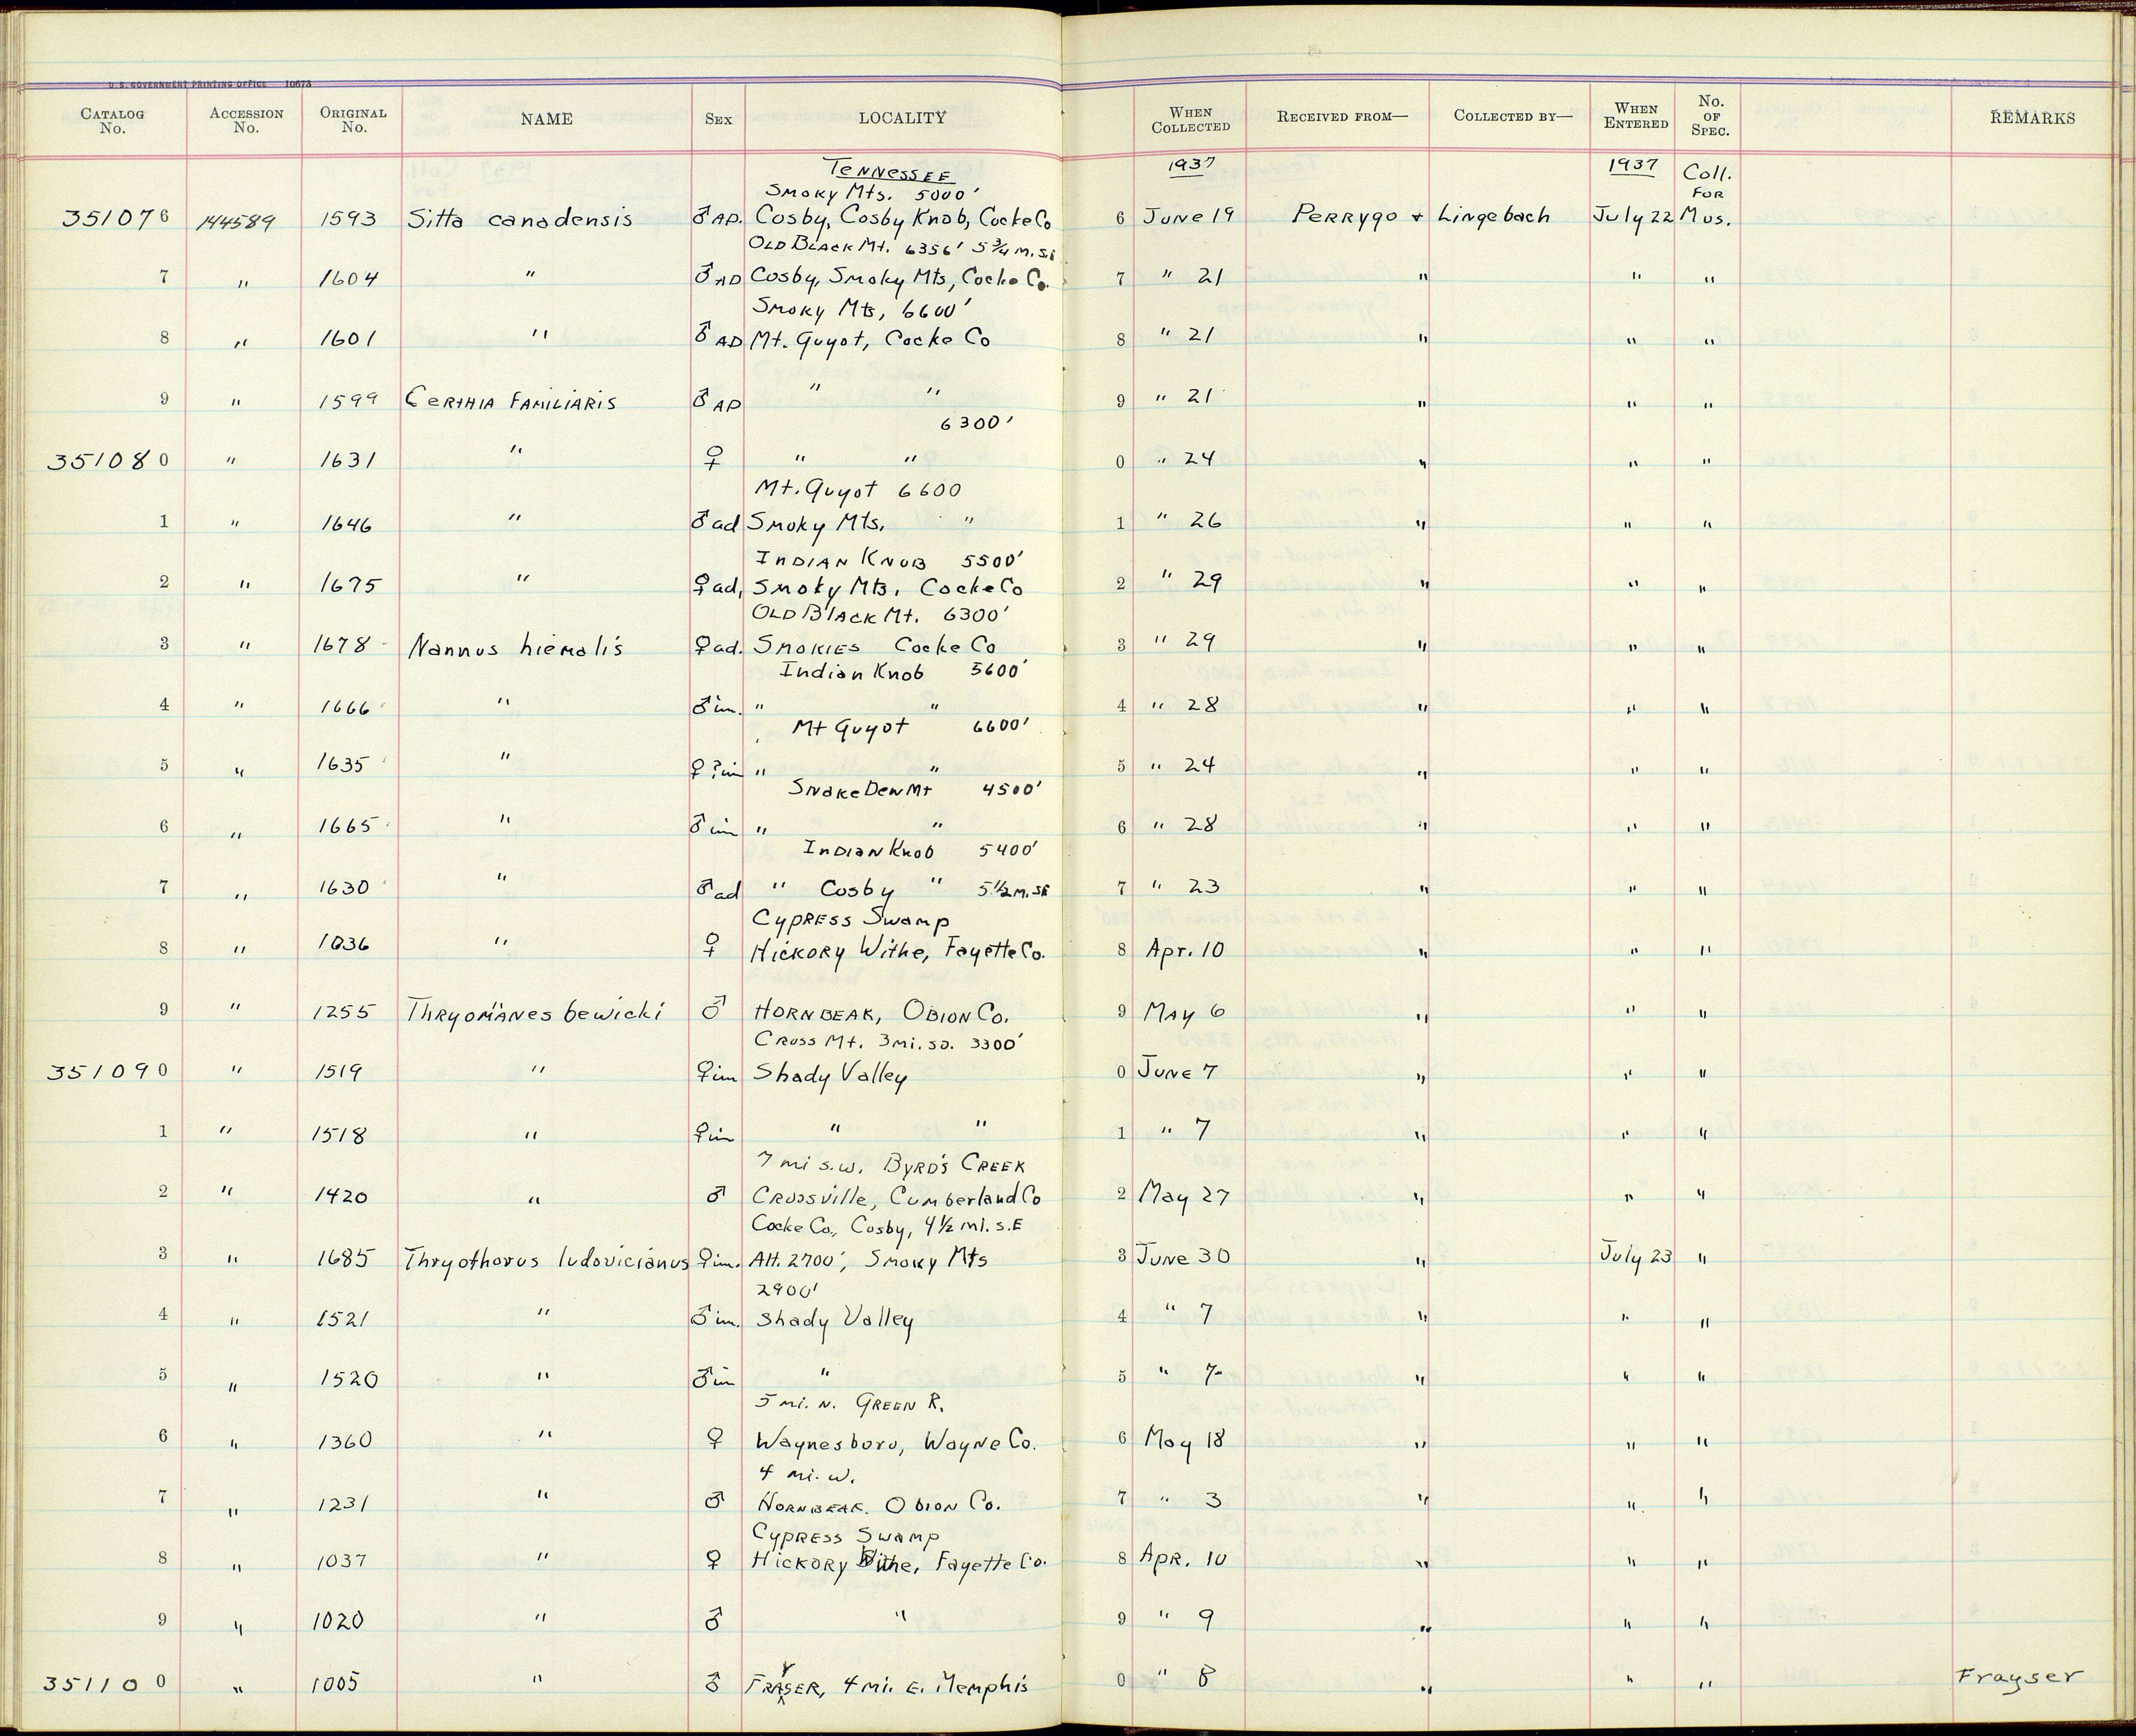 U. S. GOVERNMENT PRINTING OFFICE 10673
CATALOG No. ACCESSION No. ORIGINAL No. NAME SEX LOCALITY WHEN COLLECTED RECEIVED FROM— COLLECTED BY— WHEN ENTERED No. OF SPEC. REMARKS
TENNESSEE 1937 1937 Coll.
Smoky Mts. 5000' FOR
351076 144589 1593 Sitta canadensis ♂ AD. Cosby, Cosby Knob, Cocke Co 6 June 19 Perrygo + Lingebach July 22 Mus.
OLD BLACK Mt. 6356' 5 3/4 M. S.E
7 " 1604 " ♂ AD Cosby, Smoky Mts, Cocke Co. 7 " 21 " " "
Smoky Mts, 6600'
8 " 1601 " ♂ AD Mt. Guyot, Cocke Co 8 " 21 " " "
9 " 1599 CERTHIA FAMILIARIS ♂ AD " " 9 " 21 " " "
6300'
351080 " 1631 " ♀ " " 0 " 24 " " "
Mt. Guyot 6600
1 " 1646 " ♂ ad Smoky Mts. " 1 " 26 " " "
INDIAN KNOB 5500'
2 " 1675 " ♀ ad, Smoky Mts. Cocke Co 2 " 29 " " "
OLD BLACK Mt. 6300'
3 " 1678 Nannus hiemalis ♀ ad. SMOKIES Cocke Co 3 " 29 " " "
Indian Knob 5600'
4 " 1666 " ♂ im. " " 4 " 28 " " "
Mt Guyot 6600'
5 " 1635 " ♀ ? im " " 5 " 24 " " "
Snake Den Mt 4500'
6 " 1665 " ♂ im " " 6 " 28 " " "
Indian Knob 5400'
7 " 1630 " ♂ ad " Cosby " 5 1/2 M. SE 7 " 23 " " "
CYPRESS Swamp
8 " 1036 " ♀ Hickory Withe, Fayette Co. 8 Apr. 10 " " "
9 " 1255 Thryomanes bewicki ♂ HORNBEAK, OBION Co. 9 May 6 " " "
Cross Mt. 3 mi. so. 3300'
351090 " 1519 " ♀ im Shady Valley 0 June 7 " " "
1 " 1518 " ♀ im " " 1 " 7 " " "
7 mi s.w. BYRD'S CREEK
2 " 1420 " ♂ Crossville, Cumberland Co 2 May 27 " " "
Cocke Co., Cosby, 4 1/2 mi. S.E
3 " 1685 Thryothorus ludovicianus ♀ im. Alt. 2700', Smoky Mts 3 June 30 " July 23 "
2900'
4 " 1521 " ♂ im. Shady Valley 4 " 7 " " "
5 " 1520 " ♂ im " 5 " 7 " " "
5 mi. N. GREEN R.
6 " 1360 " ♀ Waynesboro, Wayne Co. 6 May 18 " " "
4 mi. w.
7 " 1231 " ♂ HORNBEAK. OBION Co. 7 " 3 " " "
CYPRESS Swamp
8 " 1037 " ♀ Hickory Withe, Fayette Co. 8 Apr. 10 " " "
9 " 1020 " ♂ " 9 " 9 " " "
351100 " 1005 " ♂ FRAYSER, 4 mi. E. Memphis 0 " 8 " " " Frayser